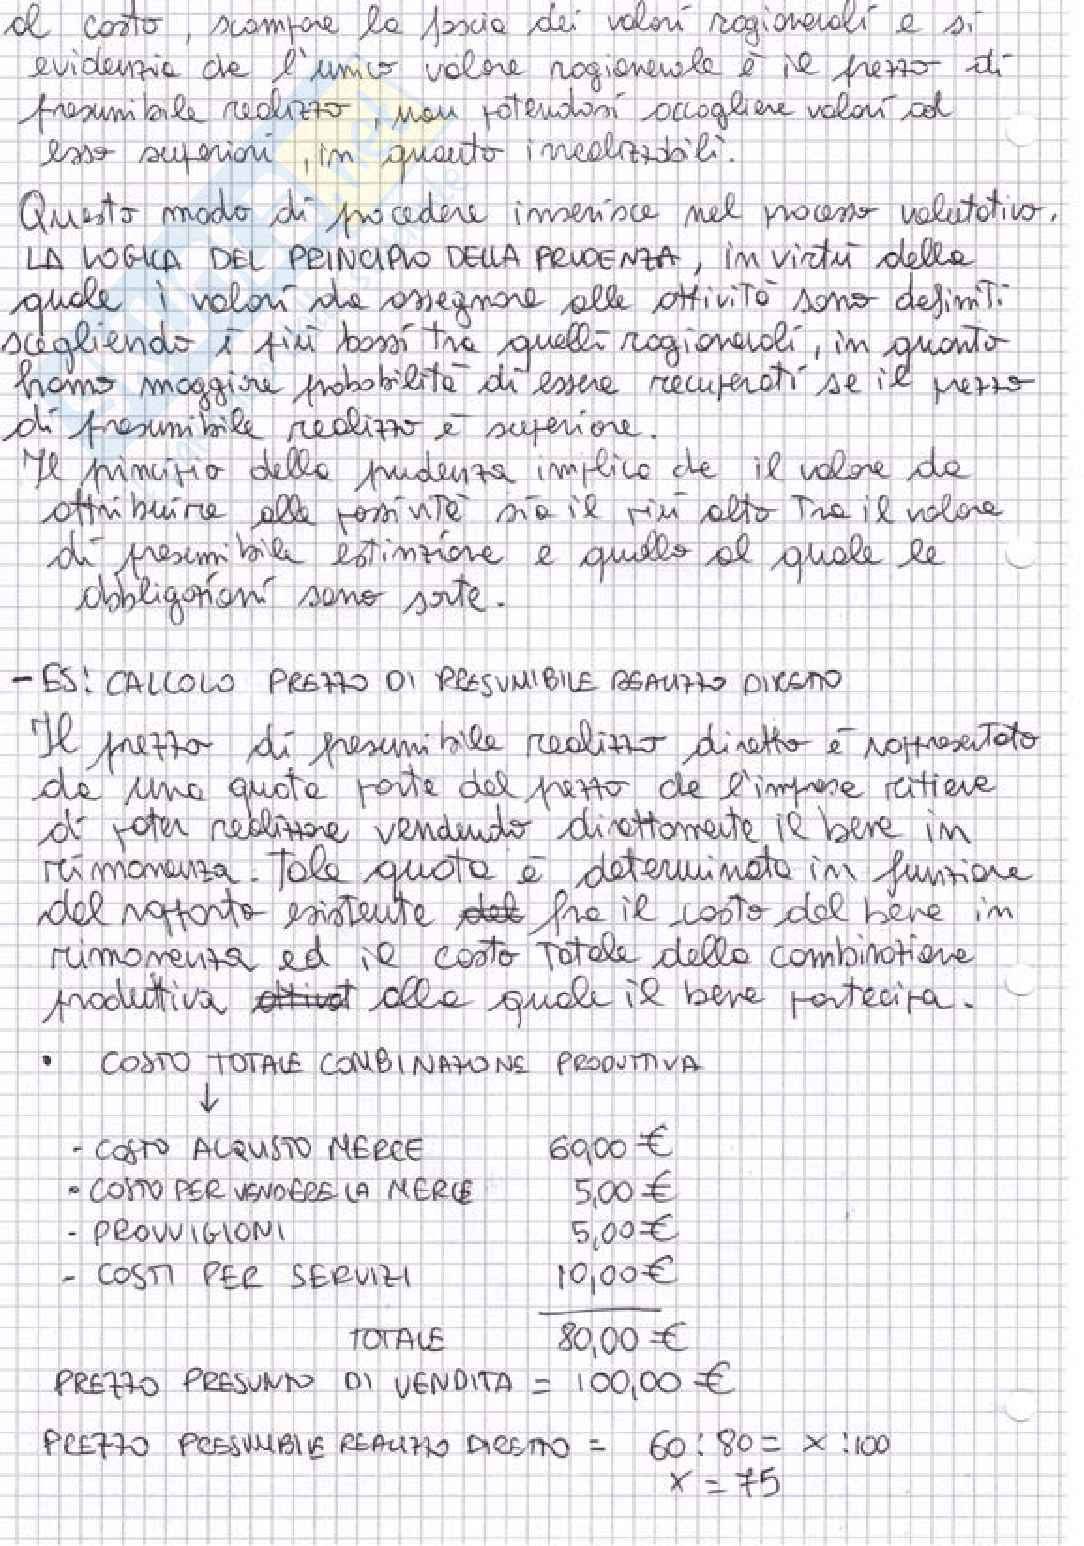 al costo, scompare la fascia dei valori ragionevoli e si
evidenzia che l'unico valore ragionevole è il prezzo di
presumibile realizzo, non potendosi accogliere valori ad
esso superiori, in quanto irrealizzabili.
Questo modo di procedere inserisce nel processo valutativo,
LA LOGICA DEL PRINCIPIO DELLA PRUDENZA, in virtù della
quale i valori da assegnare alle attività sono definiti
scegliendo i più bassi tra quelli ragionevoli, in quanto
hanno maggiore probabilità di essere recuperati se il prezzo
di presumibile realizzo è superiore.
Il principio della prudenza implica che il valore da
attribuire alle passività sia il più alto tra il valore
di presumibile estinzione e quello al quale le
obbligazioni sono sorte.
- ES: CALCOLO PREZZO DI PRESUMIBILE REALIZZO DIRETTO
Il prezzo di presumibile realizzo diretto è rappresentato
da una quota parte del prezzo che l'impresa ritiene
di poter realizzare vendendo direttamente il bene in
rimanenza. Tale quota è determinata in funzione
del rapporto esistente del fra il costo del bene in
rimanenza ed il costo totale della combinazione
produttiva alla quale il bene partecipa.
• COSTO TOTALE COMBINAZIONE PRODUTTIVA
↓
- COSTO ACQUISTO MERCE 60,00 €
- COSTO PER VENDERE LA MERCE 5,00 €
- PROVVIGIONI 5,00 €
- COSTI PER SERVIZI 10,00 €
TOTALE 80,00 €
PREZZO PRESUNTO DI VENDITA = 100,00 €
PREZZO PRESUMIBILE REALIZZO DIRETTO = 60 : 80 = x : 100
x = 75